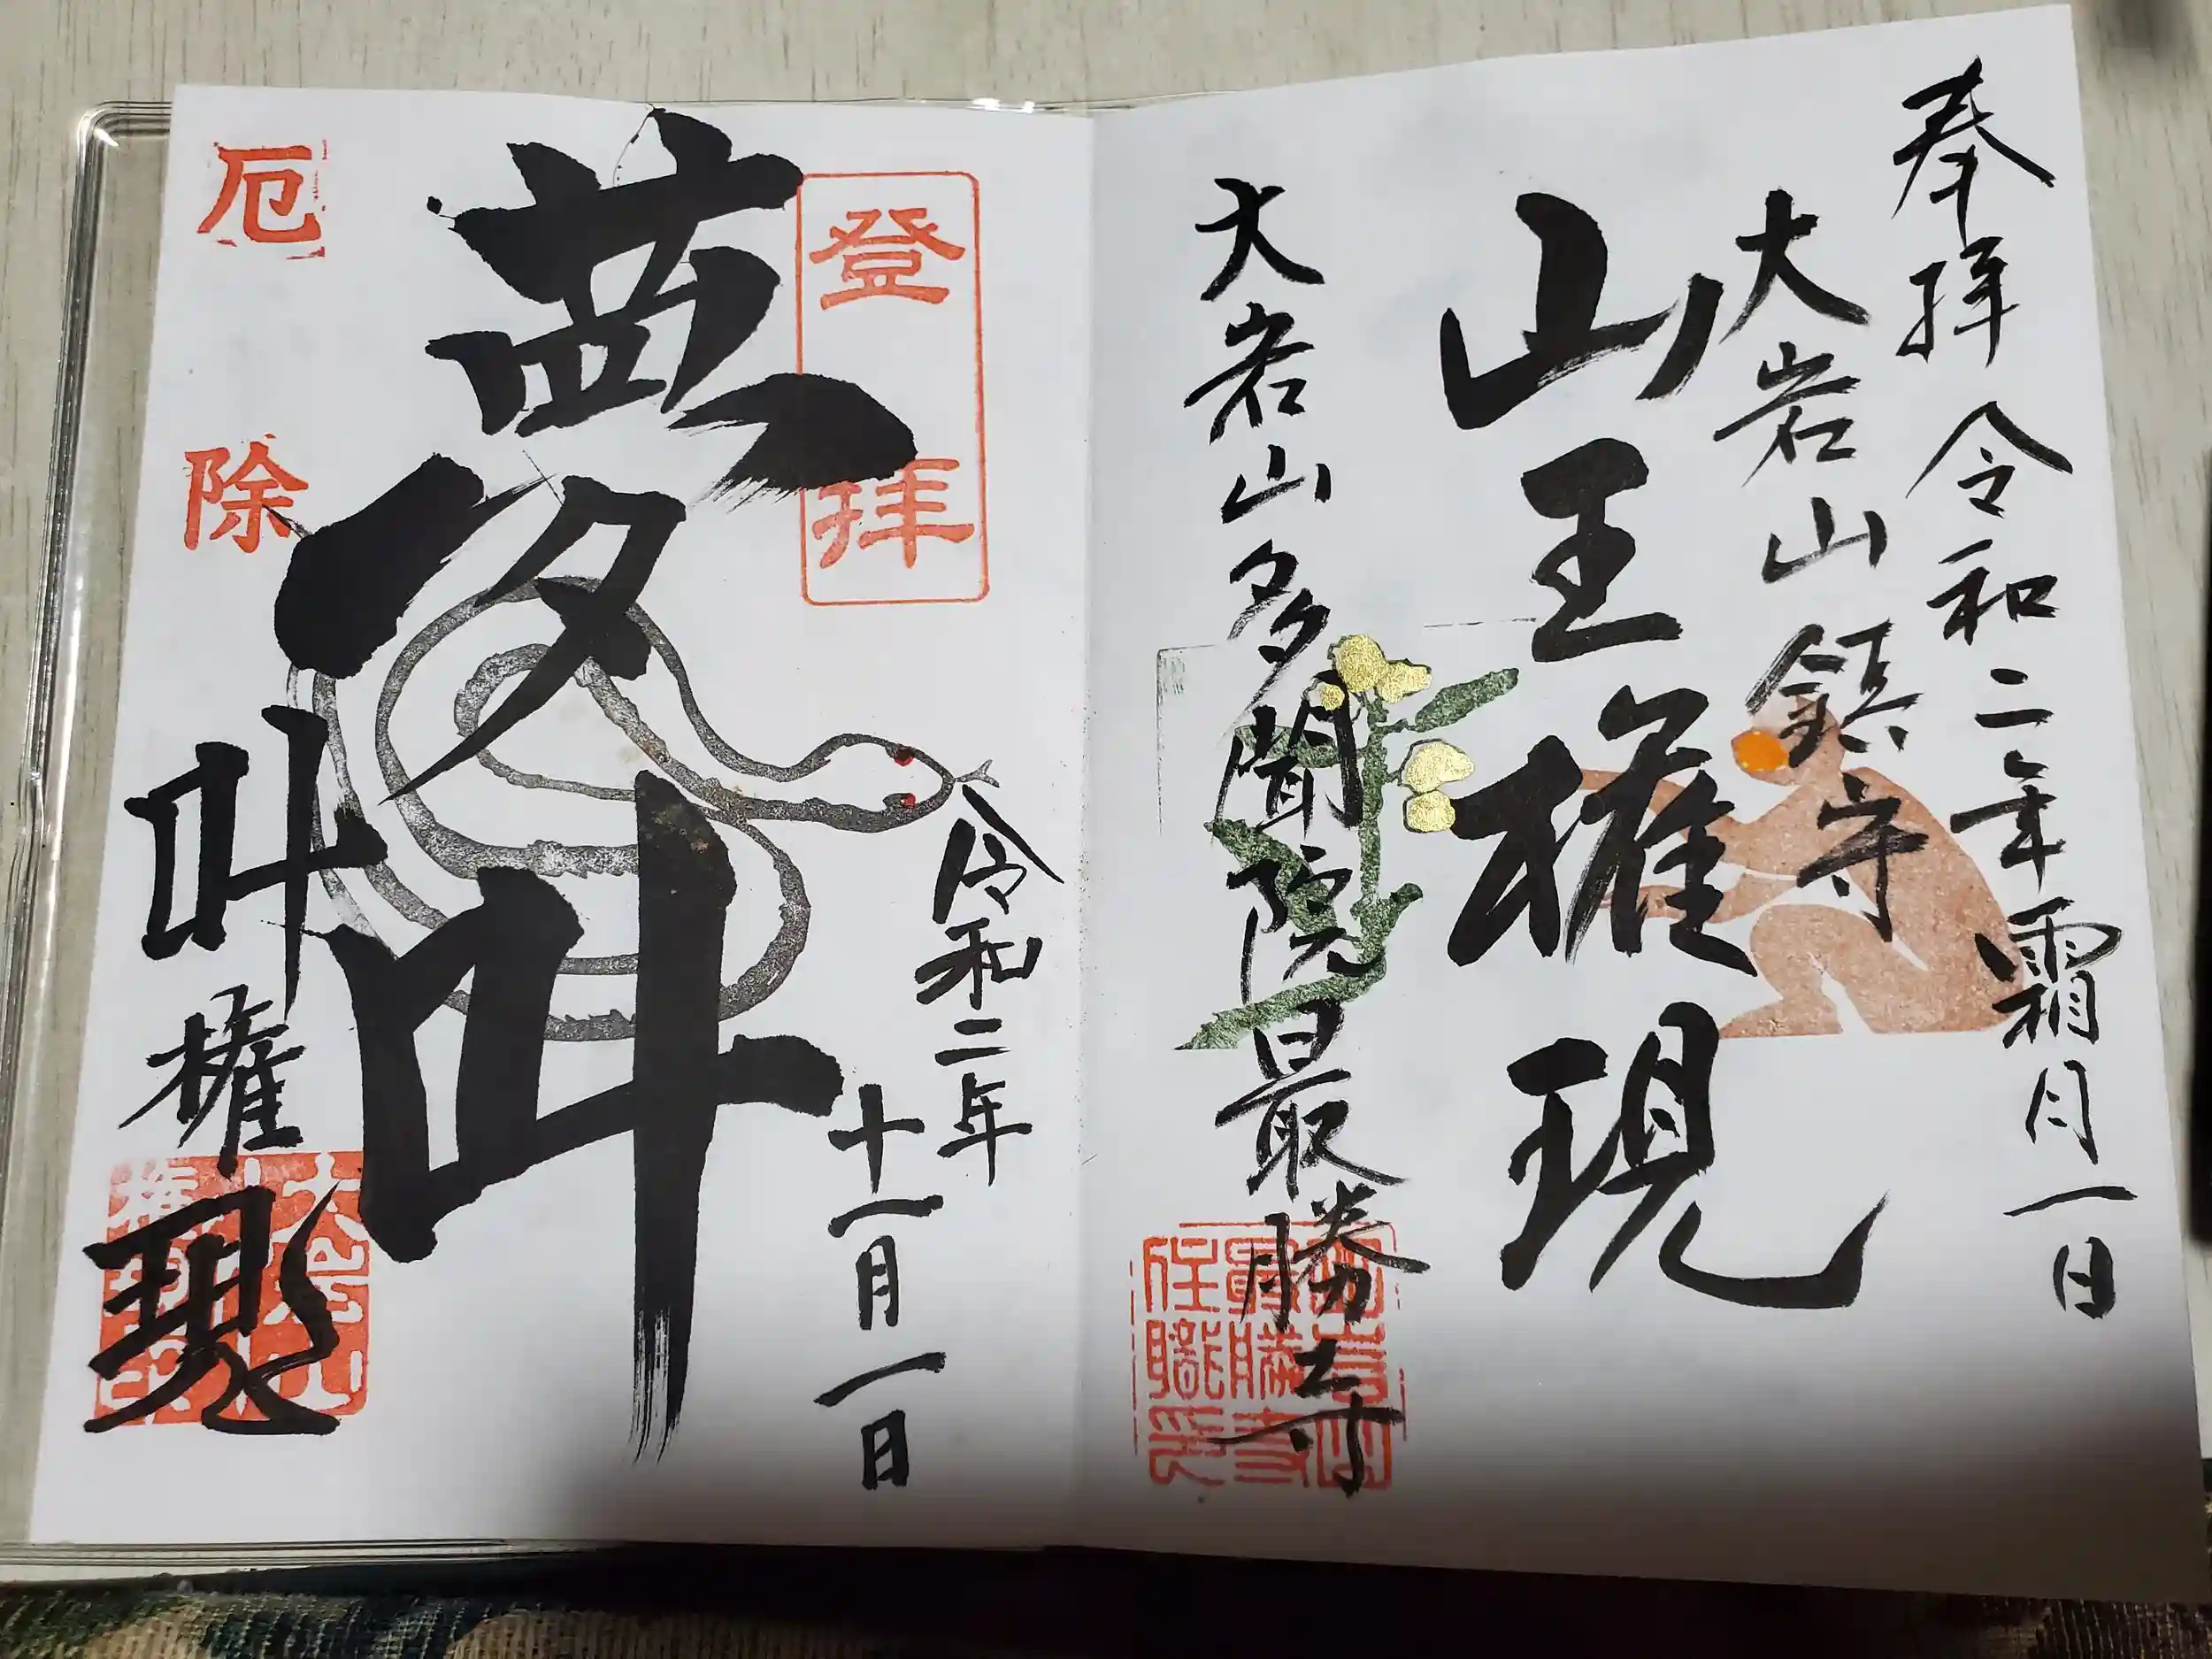 奉拝 令和二年霜月一日
大岩山鎮守
山王権現
大岩山多聞院最勝寺
最勝寺
住職印
登拝
令和二年
十一月一日
夢叶
厄除
叶権現